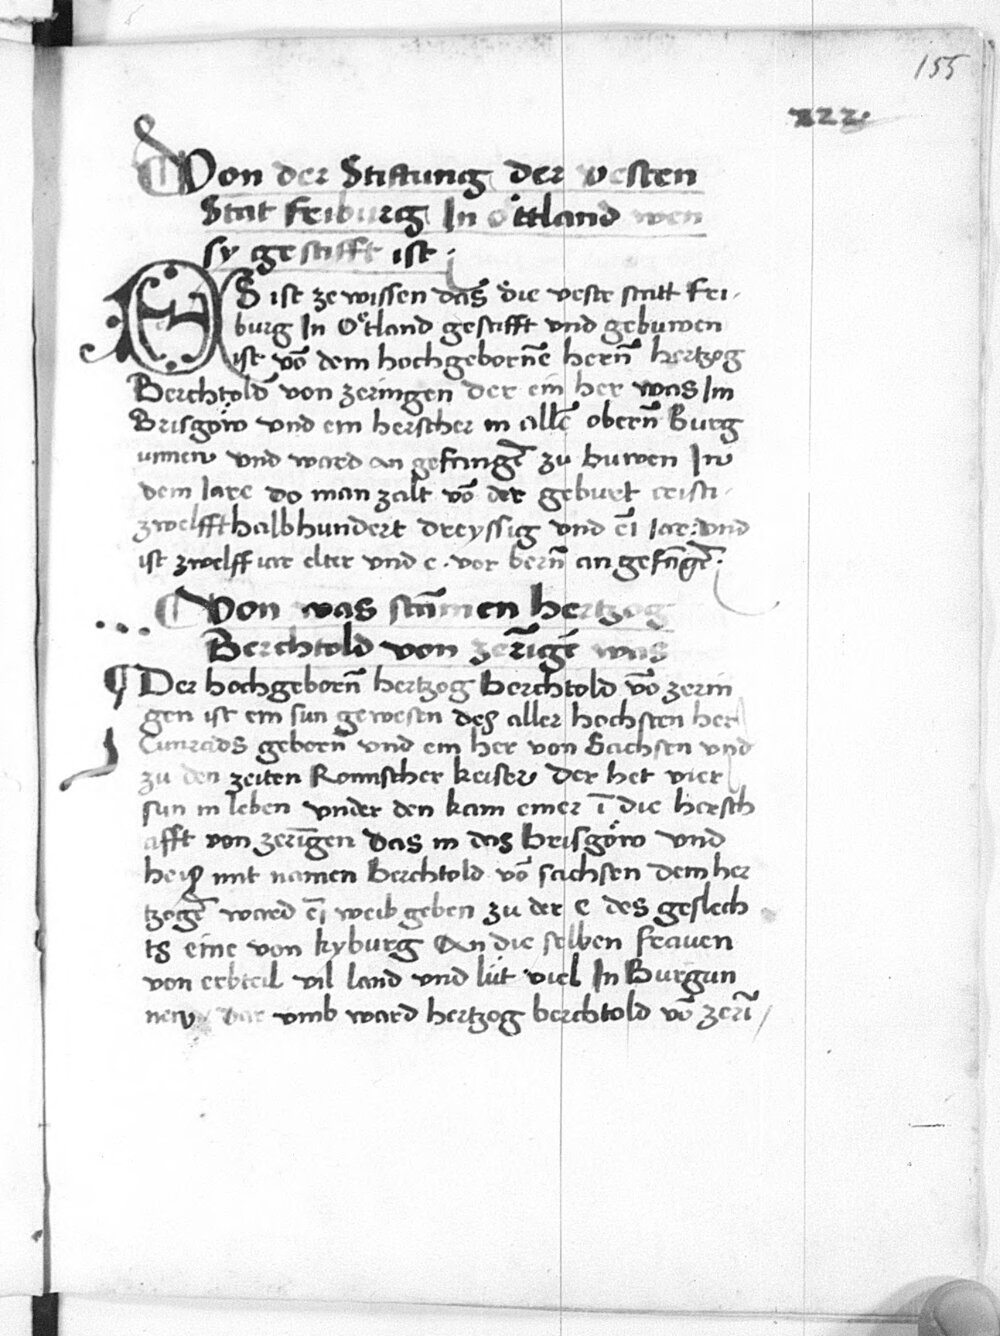 155
xxx.
Von der Stiftung der vesten
Stat friburg In öttland wen
sy gestifft ist
ES ist ze wissen das die veste statt fri
burg In Oͤtland gestifft vnd gebuwen
ist võ dem hochgebornē hern̄ hertzog
Berchtold von zeringen der ein her was Im
Brisgöw vnd ein herscher in allē obern̄ Burg
unnen vnd ward an gefangē zu buwen In
dem Iare do man zalt võ der geburt cristi
zwelffthalbhundert dreyssig vnd eī Iar: vnd
ist zwelff iar elter vnd e. vor bern̄ an gefāgē.
Von was stam̄en hertzog
Berchtold von zerīgē was
Der hochgeborn̄ hertzog Berchtold võ zerin
gen ist ein sun gewesen des aller hochsten her
Cunrads geborn̄ vnd ein her von Sachsen vnd
zu den zeiten Romscher keiser der het vier
sun in leben vnder den kam einer ī die hersch
afft von zerīgen das in das brisgöw vnd
heiß mit namen Berchtold võ sachsen dem her
tzogē ward eī weib geben zu der e des geslech
ts eine von kyburg An die selben frauen
von erbteil vil land vnd lüt viel In Burgun
nen dar vmb ward hertzog berchtold võ zerī